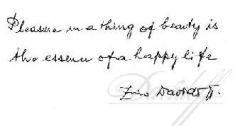 Pleasure in a thing of beauty is
the essence of a happy life
Zino Davidoff.
Davidoff